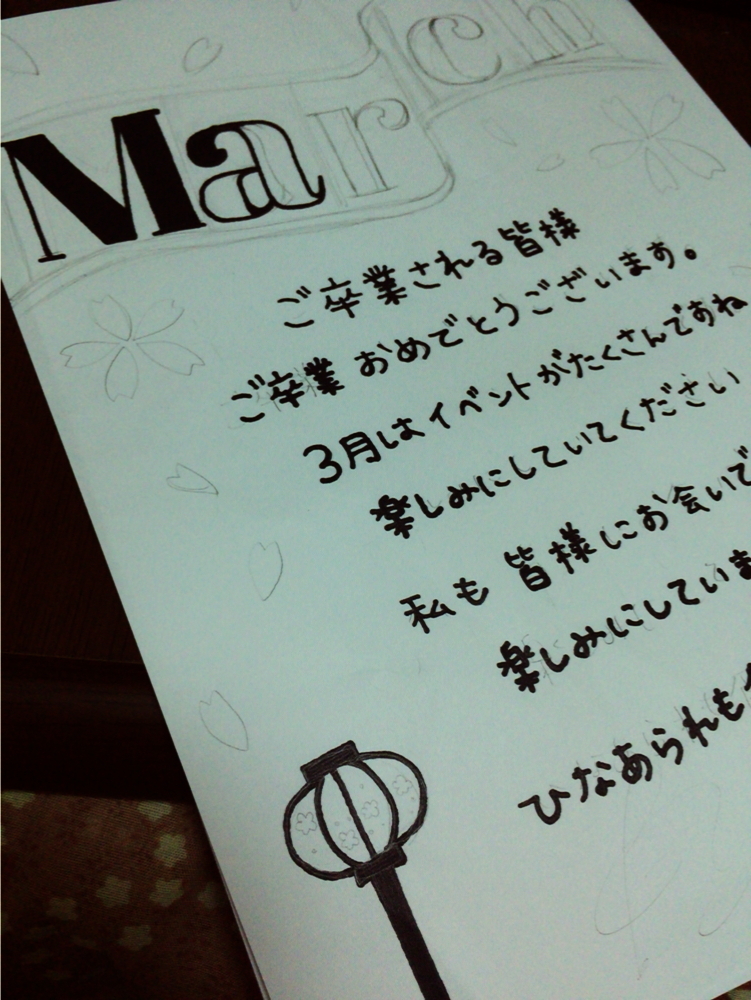 March
ご卒業される皆様
ご卒業 おめでとうございます。
3月はイベントがたくさんですね
楽しみにしていてください
私も 皆様にお会いで
楽しみにしていま
ひなあられも